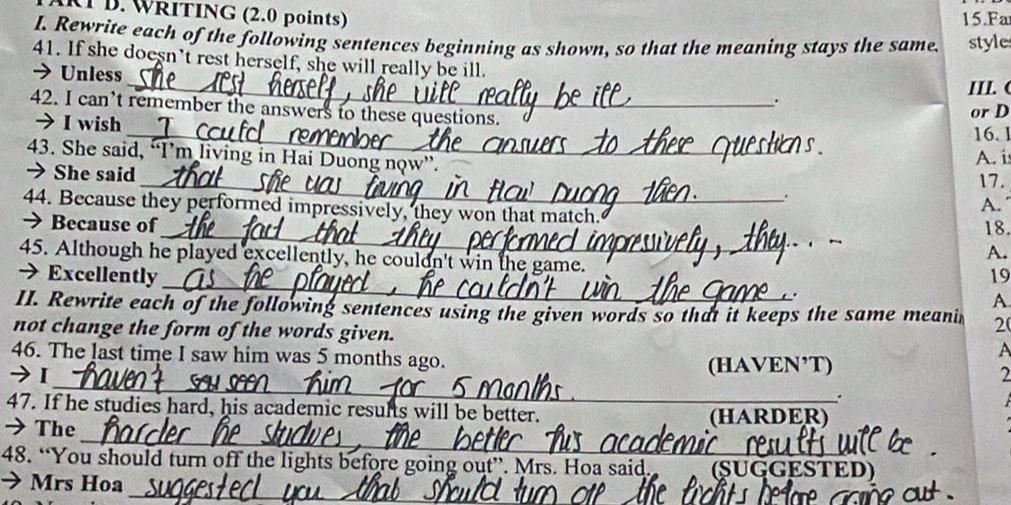 PART D. WRITING (2.0 points)
I. Rewrite each of the following sentences beginning as shown, so that the meaning stays the same.
41. If she doesn't rest herself, she will really be ill.
→ Unless she rest herself, she will really be ill.
42. I can't remember the answers to these questions.
→ I wish I could remember the answers to these questions.
43. She said, “I'm living in Hai Duong now”.
→ She said that she was living in Hai Duong then.
44. Because they performed impressively, they won that match.
→ Because of the fact that they performed impressively, they...
45. Although he played excellently, he couldn't win the game.
→ Excellently as he played, he couldn't win the game.
II. Rewrite each of the following sentences using the given words so that it keeps the same meanin
not change the form of the words given.
46. The last time I saw him was 5 months ago. (HAVEN'T)
→ I haven't seen him for 5 months.
47. If he studies hard, his academic results will be better. (HARDER)
→ The harder he studies, the better his academic results will be.
48. “You should turn off the lights before going out”. Mrs. Hoa said. (SUGGESTED)
→ Mrs Hoa suggested you that should turn off the lights before going out.
15.Fa
style
III.
or D
16.
A. is
17.
A.
18.
A.
19
A
20
A
2